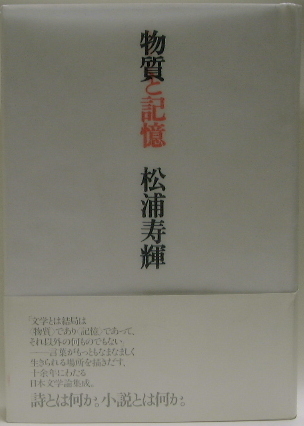 物質と記憶
松浦寿輝
「文学とは結局は
〈物質〉であり〈記憶〉であって、
それ以外の何ものでもない。
――言葉がもっともなまなましく
生きられる場所を描きだす、
十余年にわたる
日本文学論集成。
詩とは何か。小説とは何か。